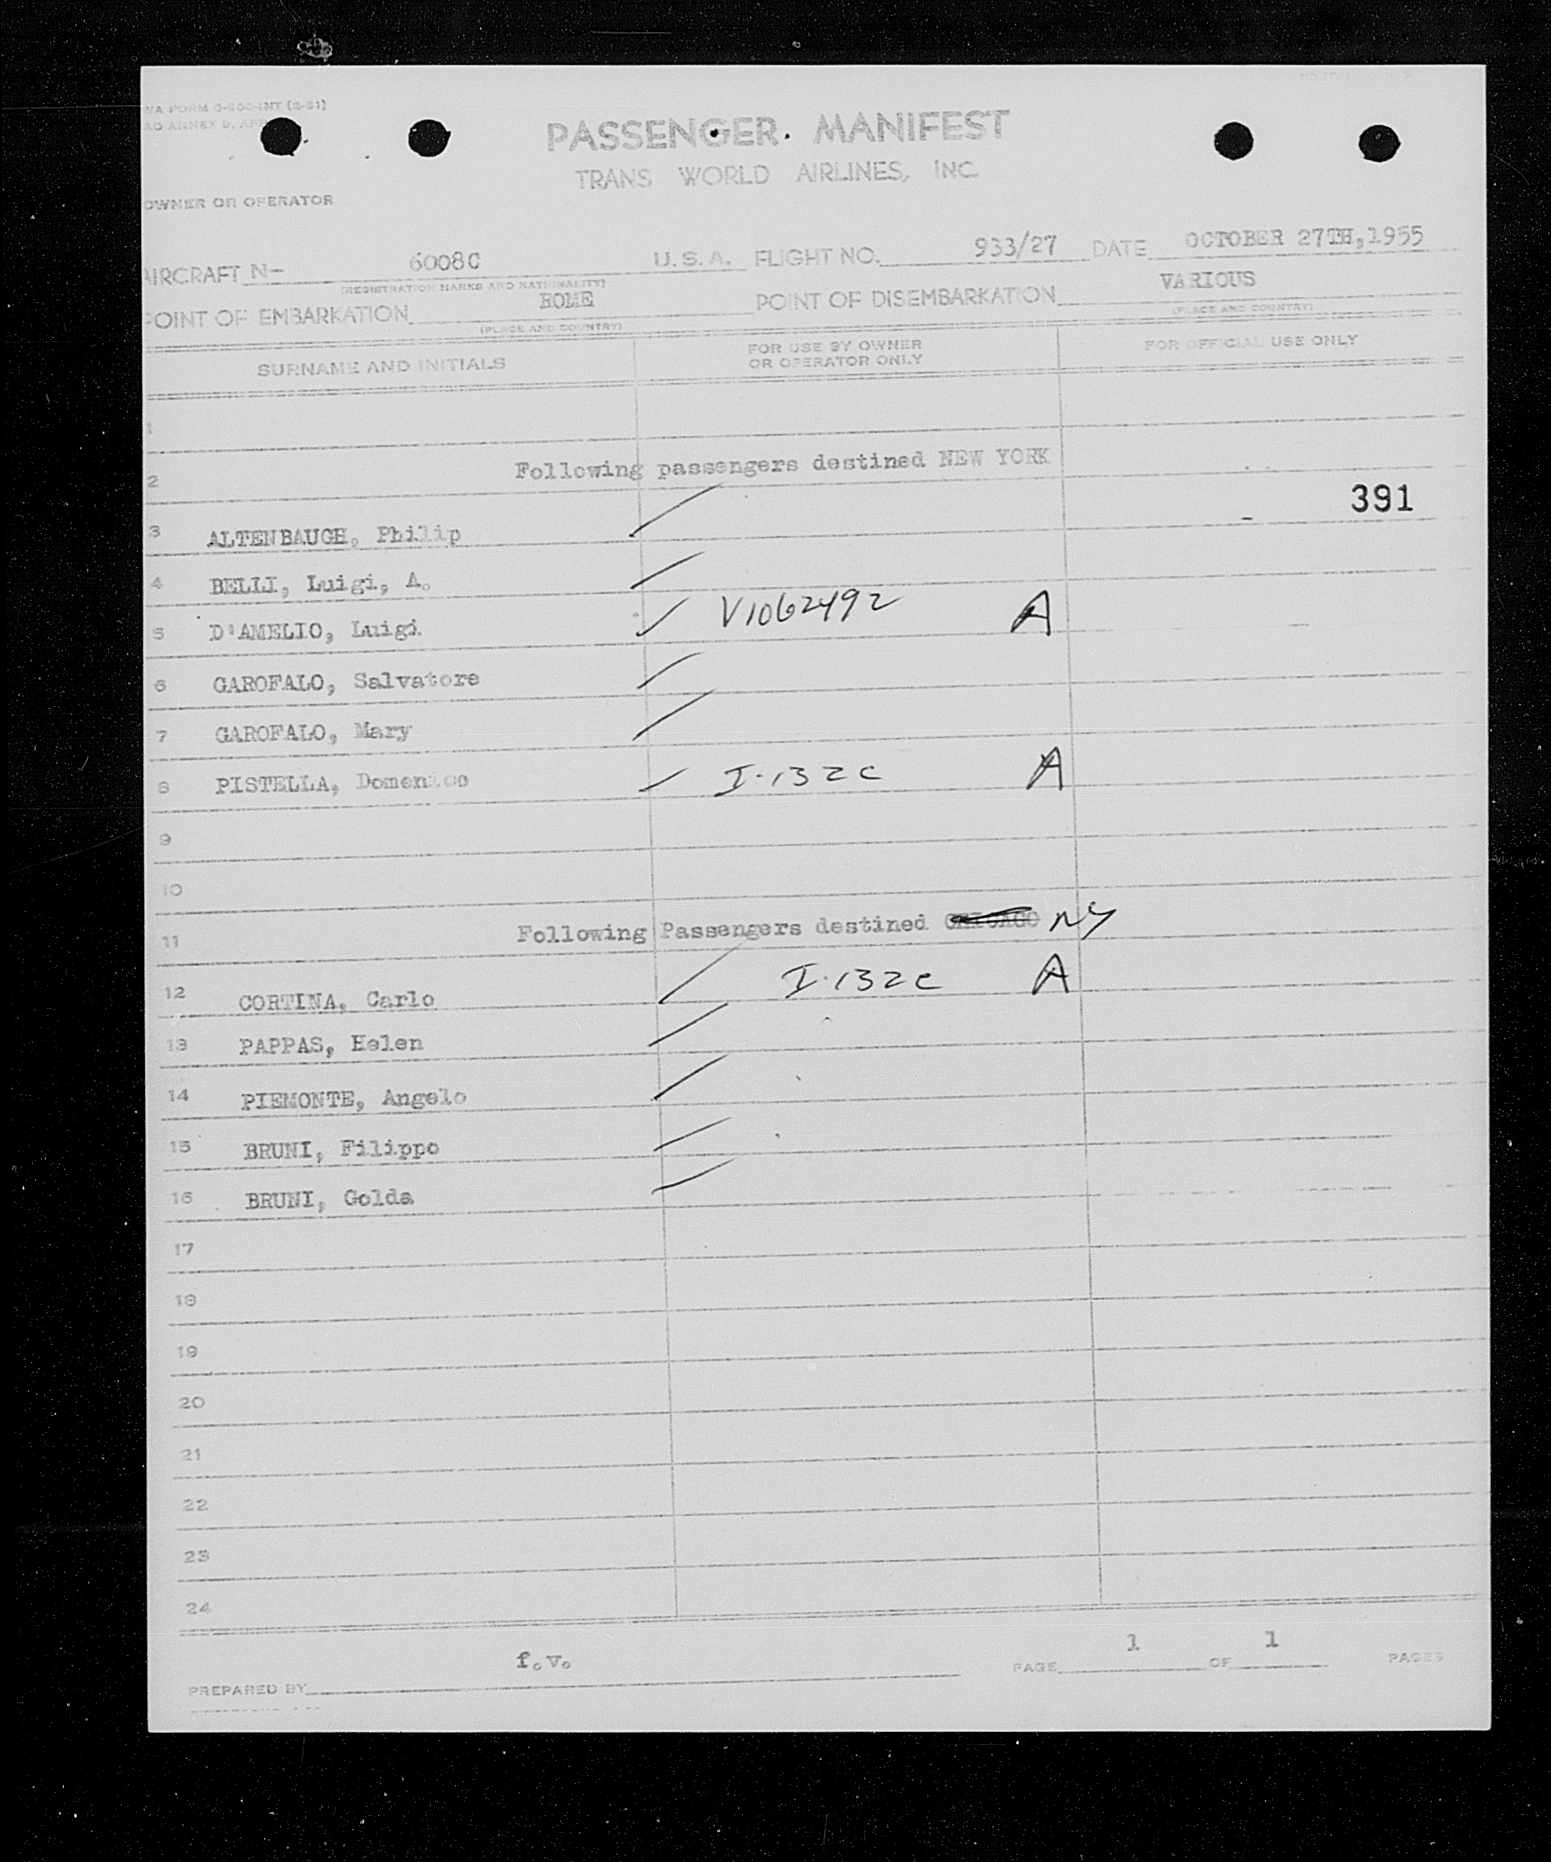 PASSENGER MANIFEST
TRANS WORLD AIRLINES, INC.
OWNER OR OPERATOR
AIRCRAFT N- 6008C U.S.A. FLIGHT NO. 933/27 DATE OCTOBER 27TH, 1955
(REGISTRATION MARKS AND NATIONALITY)
POINT OF EMBARKATION ROME POINT OF DISEMBARKATION VARIOUS
(PLACE AND COUNTRY) (PLACE AND COUNTRY)
SURNAME AND INITIALS FOR USE BY OWNER OR OPERATOR ONLY FOR OFFICIAL USE ONLY
1
2 Following passengers destined NEW YORK
391
3 ALTENBAUGH, Philip
4 BELLI, Luigi, A.
5 D'AMELIO, Luigi V1062492 A
6 GAROFALO, Salvatore
7 GAROFALO, Mary
8 PISTELLA, Domenico I-132C A
9
10
11 Following Passengers destined CHICAGO NY
12 CORTINA, Carlo I-132C A
13 PAPPAS, Helen
14 PIEMONTE, Angelo
15 BRUNI, Filippo
16 BRUNI, Golda
17
18
19
20
21
22
23
24
PREPARED BY f.v. PAGE 1 OF 1 PAGES